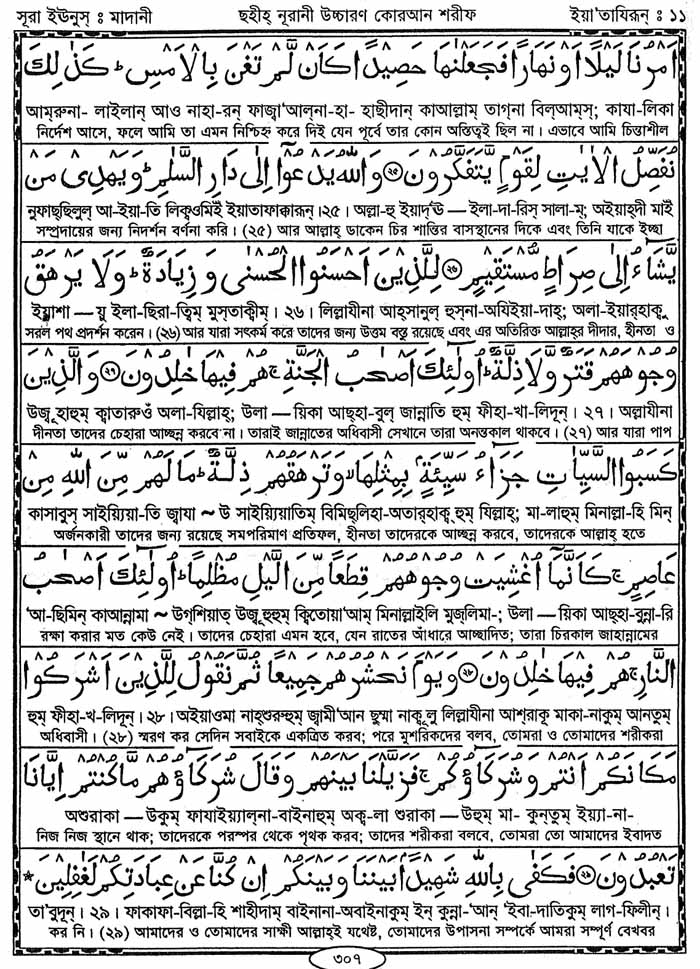 সূরা ইউনুস্ : মাদানী ছহীহ্ নূরানী উচ্চারণ কোরআন শরীফ ইয়া'তাযিরূন্ : ১১
اَمْرُنَا لَيْلًا اَوْ نَهَارًا فَجَعَلْنٰهَا حَصِيْدًا كَاَنْ لَّمْ تَغْنَ بِالْاَمْسِ ؕ كَذٰلِكَ
আম্রুনা- লাইলান্ আও নাহা-রন্ ফাজ্বা'আল্না-হা- হাছীদান্ কাআল্লাম্ তাগ্না বিল্আম্স্; কাযা-লিকা
নির্দেশ আসে, ফলে আমি তা এমন নিশ্চিহ্ন করে দিই যেন পূর্বে তার কোন অস্তিত্বই ছিল না। এভাবে আমি চিন্তাশীল
نُفَصِّلُ الْاٰيٰتِ لِقَوْمٍ يَّتَفَكَّرُوْنَ ۝۲۵ وَاللّٰهُ يَدْعُوْۤا اِلٰى دَارِ السَّلٰمِ ؕ وَيَهْدِىْ مَنْ
নুফাছ্ছিলুল্ আ-ইয়া-তি লিক্বওমিইঁ ইয়াতাফাক্কারূন্।২৫। অল্লা-হু ইয়াদ্'ঊ — ইলা-দা-রিস্ সালা-ম্; অইয়াহ্দী মাইঁ
সম্প্রদায়ের জন্য নিদর্শন বর্ণনা করি। (২৫) আর আল্লাহ্ ডাকেন চির শান্তির বাসস্থানের দিকে এবং তিনি যাকে ইচ্ছা
يَّشَآءُ اِلٰى صِرَاطٍ مُّسْتَقِيْمٍ ۝۲۶ لِلَّذِيْنَ اَحْسَنُوا الْحُسْنٰى وَزِيَادَةٌ ؕ وَلَا يَرْهَقُ
ইয়াশা — য়ু ইলা-ছিরা-ত্বিম্ মুস্তাক্বীম্। ২৬। লিল্লাযীনা আহ্সানুল্ হুস্না-অযিইয়া-দাহ্; অলা-ইয়ার্হাক্বু
সরল পথ প্রদর্শন করেন। (২৬) আর যারা সৎকর্ম করে তাদের জন্য উত্তম বস্তু রয়েছে এবং এর অতিরিক্ত আল্লাহ্র দীদার, হীনতা ও
وُجُوْهَهُمْ قَتَرٌ وَّلَا ذِلَّةٌ ؕ اُولٰٓئِكَ اَصْحٰبُ الْجَنَّةِ ۚ هُمْ فِيْهَا خٰلِدُوْنَ ۝۲۷ وَالَّذِيْنَ
উজূহাহুম্ ক্বাতারুওঁ অলা-যিল্লাহ্; উলা — য়িকা আছ্হা-বুল্ জান্নাতি হুম্ ফীহা-খা-লিদূন্। ২৭। অল্লাযীনা
দীনতা তাদের চেহারা আচ্ছন্ন করবে না। তারাই জান্নাতের অধিবাসী সেখানে তারা অনন্তকাল থাকবে। (২৭) আর যারা পাপ
كَسَبُوا السَّيِّاٰتِ جَزَآءُ سَيِّئَةٍۭ بِمِثْلِهَا ۙ وَتَرْهَقُهُمْ ذِلَّةٌ ؕ مَا لَهُمْ مِّنَ اللّٰهِ مِنْ
কাসাবুস্ সাইয়্যিয়া-তি জ্বাযা ~ উ সাইয়্যিয়াতিম্ বিমিছ্লিহা-অতার্হাক্বু হুম্ যিল্লাহ্; মা-লাহুম্ মিনাল্লা-হি মিন্
অর্জনকারী তাদের জন্য রয়েছে সমপরিমাণ প্রতিফল, হীনতা তাদেরকে আচ্ছন্ন করবে, তাদেরকে আল্লাহ্ হতে
عَاصِمٍ ۚ كَاَنَّمَاۤ اُغْشِيَتْ وُجُوْهُهُمْ قِطَعًا مِّنَ الَّيْلِ مُظْلِمًا ؕ اُولٰٓئِكَ اَصْحٰبُ
'আ-ছিমিন্ কাআন্নামা ~ উগ্শিয়াত্ উজূ হুহুম্ ক্বিত্বোয়া'আম্ মিনাল্লাইলি মুজ্লিমা-; উলা — য়িকা আছ্হা-বুন্না-রি
রক্ষা করার মত কেউ নেই। তাদের চেহারা এমন হবে, যেন রাতের আঁধারে আচ্ছাদিত; তারা চিরকাল জাহান্নামের
النَّارِ ۚ هُمْ فِيْهَا خٰلِدُوْنَ ۝۲۸ وَيَوْمَ نَحْشُرُهُمْ جَمِيْعًا ثُمَّ نَقُوْلُ لِلَّذِيْنَ اَشْرَكُوْا
হুম্ ফীহা-খ-লিদূন্। ২৮। অইয়াওমা নাহ্শুরুহুম্ জ্বামী'আন ছুম্মা নাক্বূলু লিল্লাযীনা আশ্রাকূ মাকা-নাকুম্ আন্তুম্
অধিবাসী। (২৮) স্মরণ কর সেদিন সবাইকে একত্রিত করব; পরে মুশরিকদের বলব, তোমরা ও তোমাদের শরীকরা
مَكَانَكُمْ اَنْتُمْ وَشُرَكَآؤُكُمْ ۚ فَزَيَّلْنَا بَيْنَهُمْ وَقَالَ شُرَكَآؤُهُمْ مَّا كُنْتُمْ اِيَّانَا
অশুরাকা — উকুম্ ফাযাইয়্যাল্না-বাইনাহুম্ অক্ব-লা শুরাকা — উহুম্ মা- কুন্তুম্ ইয়্যা-না-
নিজ নিজ স্থানে থাক; তাদেরকে পরস্পর থেকে পৃথক করব; তাদের শরীকরা বলবে, তোমরা তো আমাদের ইবাদত
تَعْبُدُوْنَ ۝۲۹ فَكَفٰى بِاللّٰهِ شَهِيْدًۢا بَيْنَنَا وَبَيْنَكُمْ اِنْ كُنَّا عَنْ عِبَادَتِكُمْ لَغٰفِلِيْنَ *
তা'বুদূন্। ২৯। ফাকাফা-বিল্লা-হি শাহীদাম্ বাইনানা-অবাইনাকুম্ ইন্ কুন্না-'আন্ 'ইবা-দাতিকুম্ লাগ-ফিলীন্।
কর নি। (২৯) আমাদের ও তোমাদের সাক্ষী আল্লাহ্ই যথেষ্ট, তোমাদের উপাসনা সম্পর্কে আমরা সম্পূর্ণ বেখবর
৩০৭